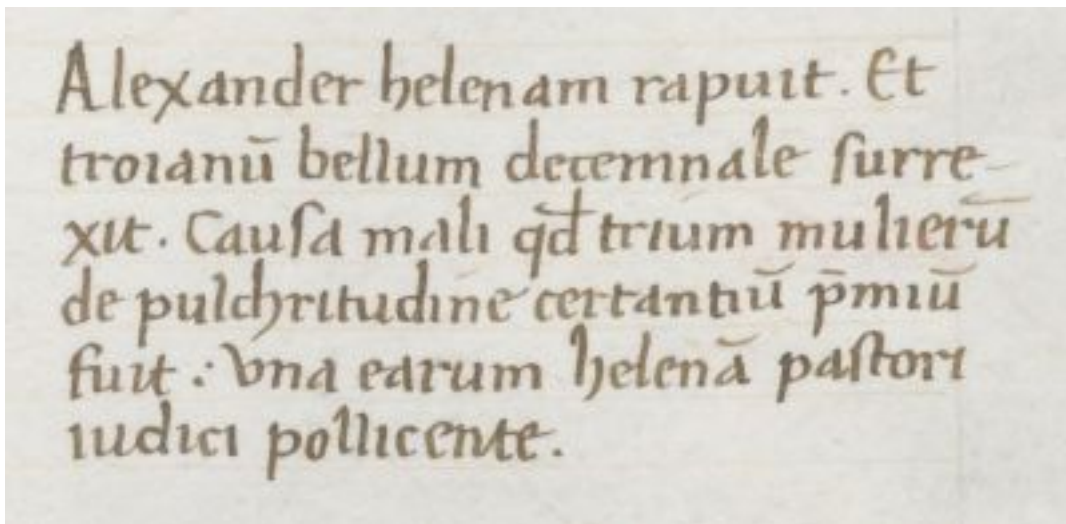 Alexander helenam rapuit. Et
troianū bellum decemnale ſurre-
xit. Cauſa mali qđ trium mulierū
de pulchritudine certantiū p̄miū
fuit: Vna earum helenā paſtori
iudici pollicente.